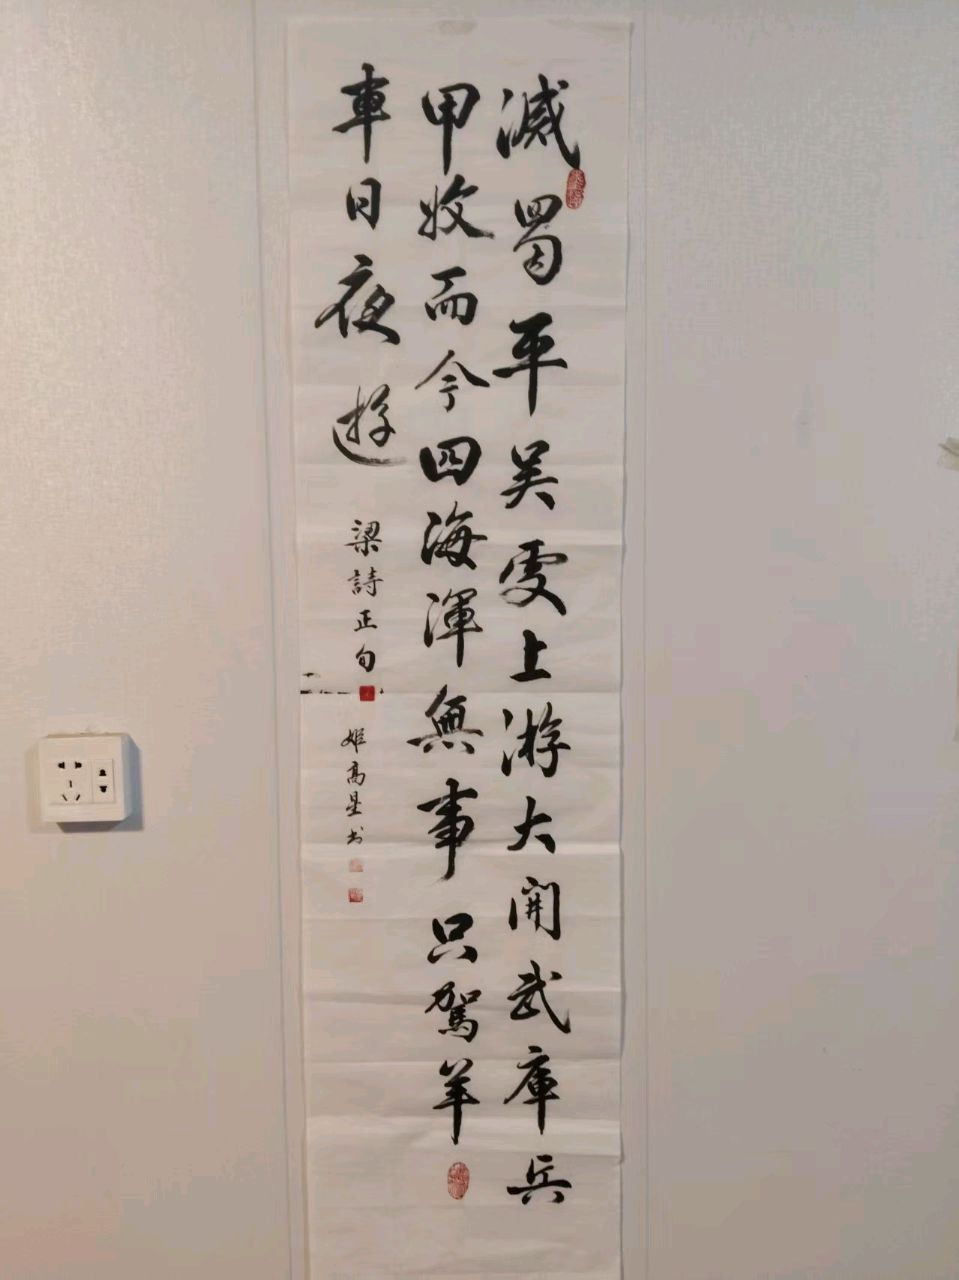 滅蜀平吴受上游大開武庫兵
甲收而今四海渾無事只駕羊
車日夜遊
梁詩正句
姬高星书